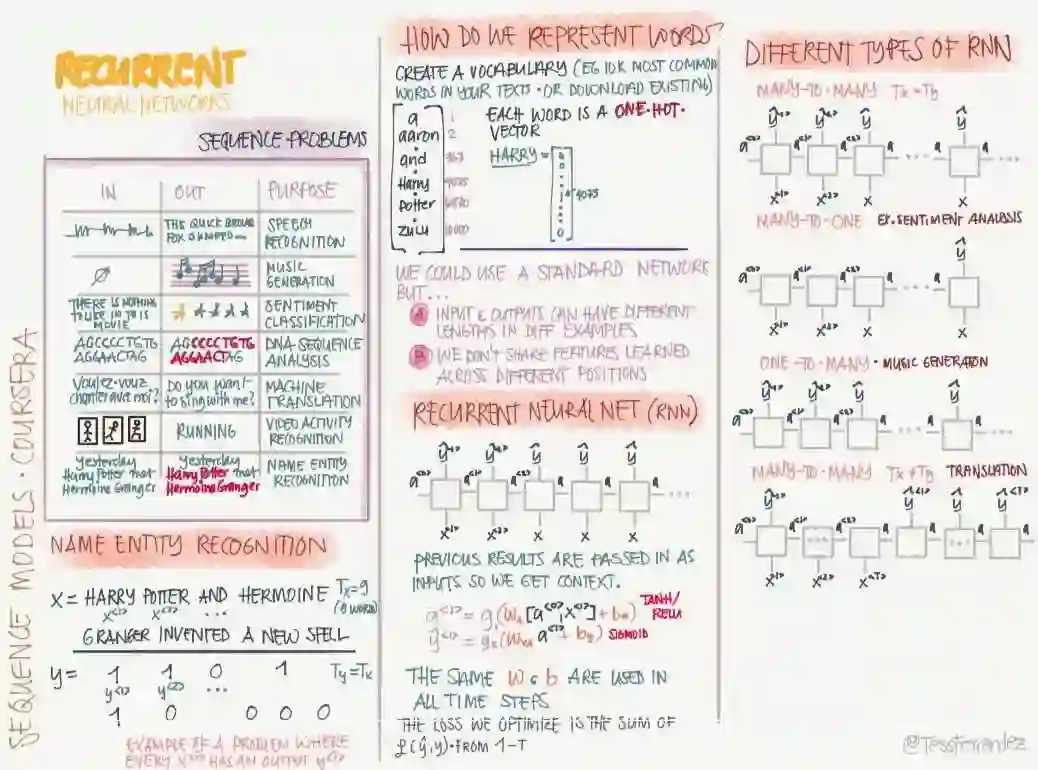 RECURRENT
NEURAL NETWORKS
SEQUENCE PROBLEMS
IN OUT PURPOSE
THE QUICK BROWN
FOX JUMPED...
SPEECH
RECOGNITION
∅
MUSIC
GENERATION
THERE IS NOTHING
TO LIKE IN THIS
MOVIE
SENTIMENT
CLASSIFICATION
AGCCCCTGTG
AGGAACTAG
AGCCCCTGTG
AGGAACTAG
DNA SEQUENCE
ANALYSIS
Voulez-vouz
chanter avec moi?
Do you want
to sing with me?
MACHINE
TRANSLATION
RUNNING
VIDEO ACTIVITY
RECOGNITION
Yesterday
Harry Potter met
Hermoine Granger
Yesterday
Harry Potter met
Hermoine Granger
NAME ENTITY
RECOGNITION
NAME ENTITY RECOGNITION
X = HARRY POTTER AND HERMOINE Tx=9
x<1> x<2> ... (9 WORDS)
GRANGER INVENTED A NEW SPELL
y = 1 1 0 1 Ty=Tx
y<1> y<2> ...
1 0 0 0 0
EXAMPLE OF A PROBLEM WHERE
EVERY X<t> HAS AN OUTPUT y<t>
SEQUENCE MODELS · COURSERA
HOW DO WE REPRESENT WORDS?
CREATE A VOCABULARY (EG 10K MOST COMMON
WORDS IN YOUR TEXTS · OR DOWNLOAD EXISTING)
a 1
aaron 2
and 367
Harry 4075
Potter 6830
zulu 10000
EACH WORD IS A ONE·HOT·
VECTOR
HARRY =
0
0
1
4075
0
WE COULD USE A STANDARD NETWORK
BUT...
A INPUT & OUTPUTS CAN HAVE DIFFERENT
LENGTHS IN DIFF EXAMPLES
B WE DON'T SHARE FEATURES LEARNED
ACROSS DIFFERENT POSITIONS
RECURRENT NEURAL NET (RNN)
ŷ<1> ŷ<2> ŷ ŷ ŷ
a<0> a<1> a<2> a a ...
x<1> x<2> x x x
PREVIOUS RESULTS ARE PASSED IN AS
INPUTS SO WE GET CONTEXT.
a<1> = g₁(Wa[a<0>,x<1>] + ba) TANH/
RELU
ŷ<1> = g₂(Wya a<1> + by) SIGMOID
THE SAME W & b ARE USED IN
ALL TIME STEPS
THE LOSS WE OPTIMIZE IS THE SUM OF
ℒ(ŷ,y) · FROM 1-T
DIFFERENT TYPES OF RNN
MANY-TO-MANY Tx = Ty
ŷ<1> ŷ<2> ŷ ŷ
a<0> a<1> a<2> a ... a ...
x<1> x<2> x x
MANY-TO-ONE EX. SENTIMENT ANALYSIS
ŷ
a<0> a<1> a<2> a ... a
x<1> x<2> x x
ONE-TO-MANY · MUSIC GENERATION
ŷ<1> ŷ<2> ŷ ŷ
a<0> a<1> a<2> a ... a ...
MANY-TO-MANY Tx ≠ Ty TRANSLATION
ŷ<1> ŷ<1> ŷ ŷ<T>
a<0> a<1> a<2> a a a
x<1> x<2> x<T>
@TessFerrandez